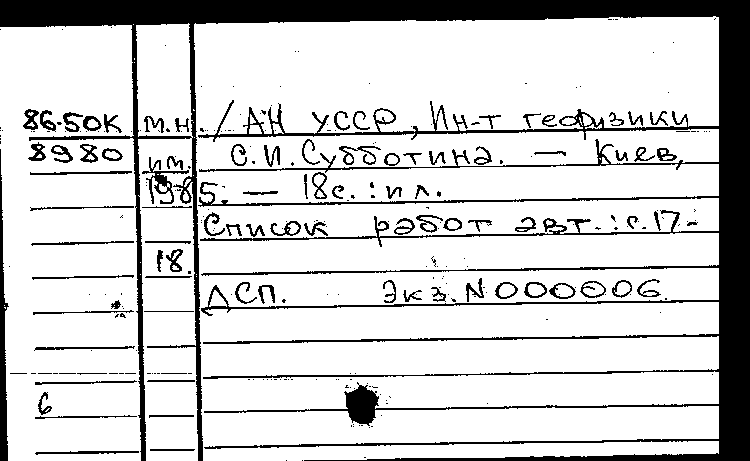 86-50К м.н./ АН УССР, Ин-т геофизики
8980 им. С.И.Субботина. — Киев,
1985. — 18с.:ил.
Список работ авт.:с.17-
18.
ДСП. Экз.N000006.
6